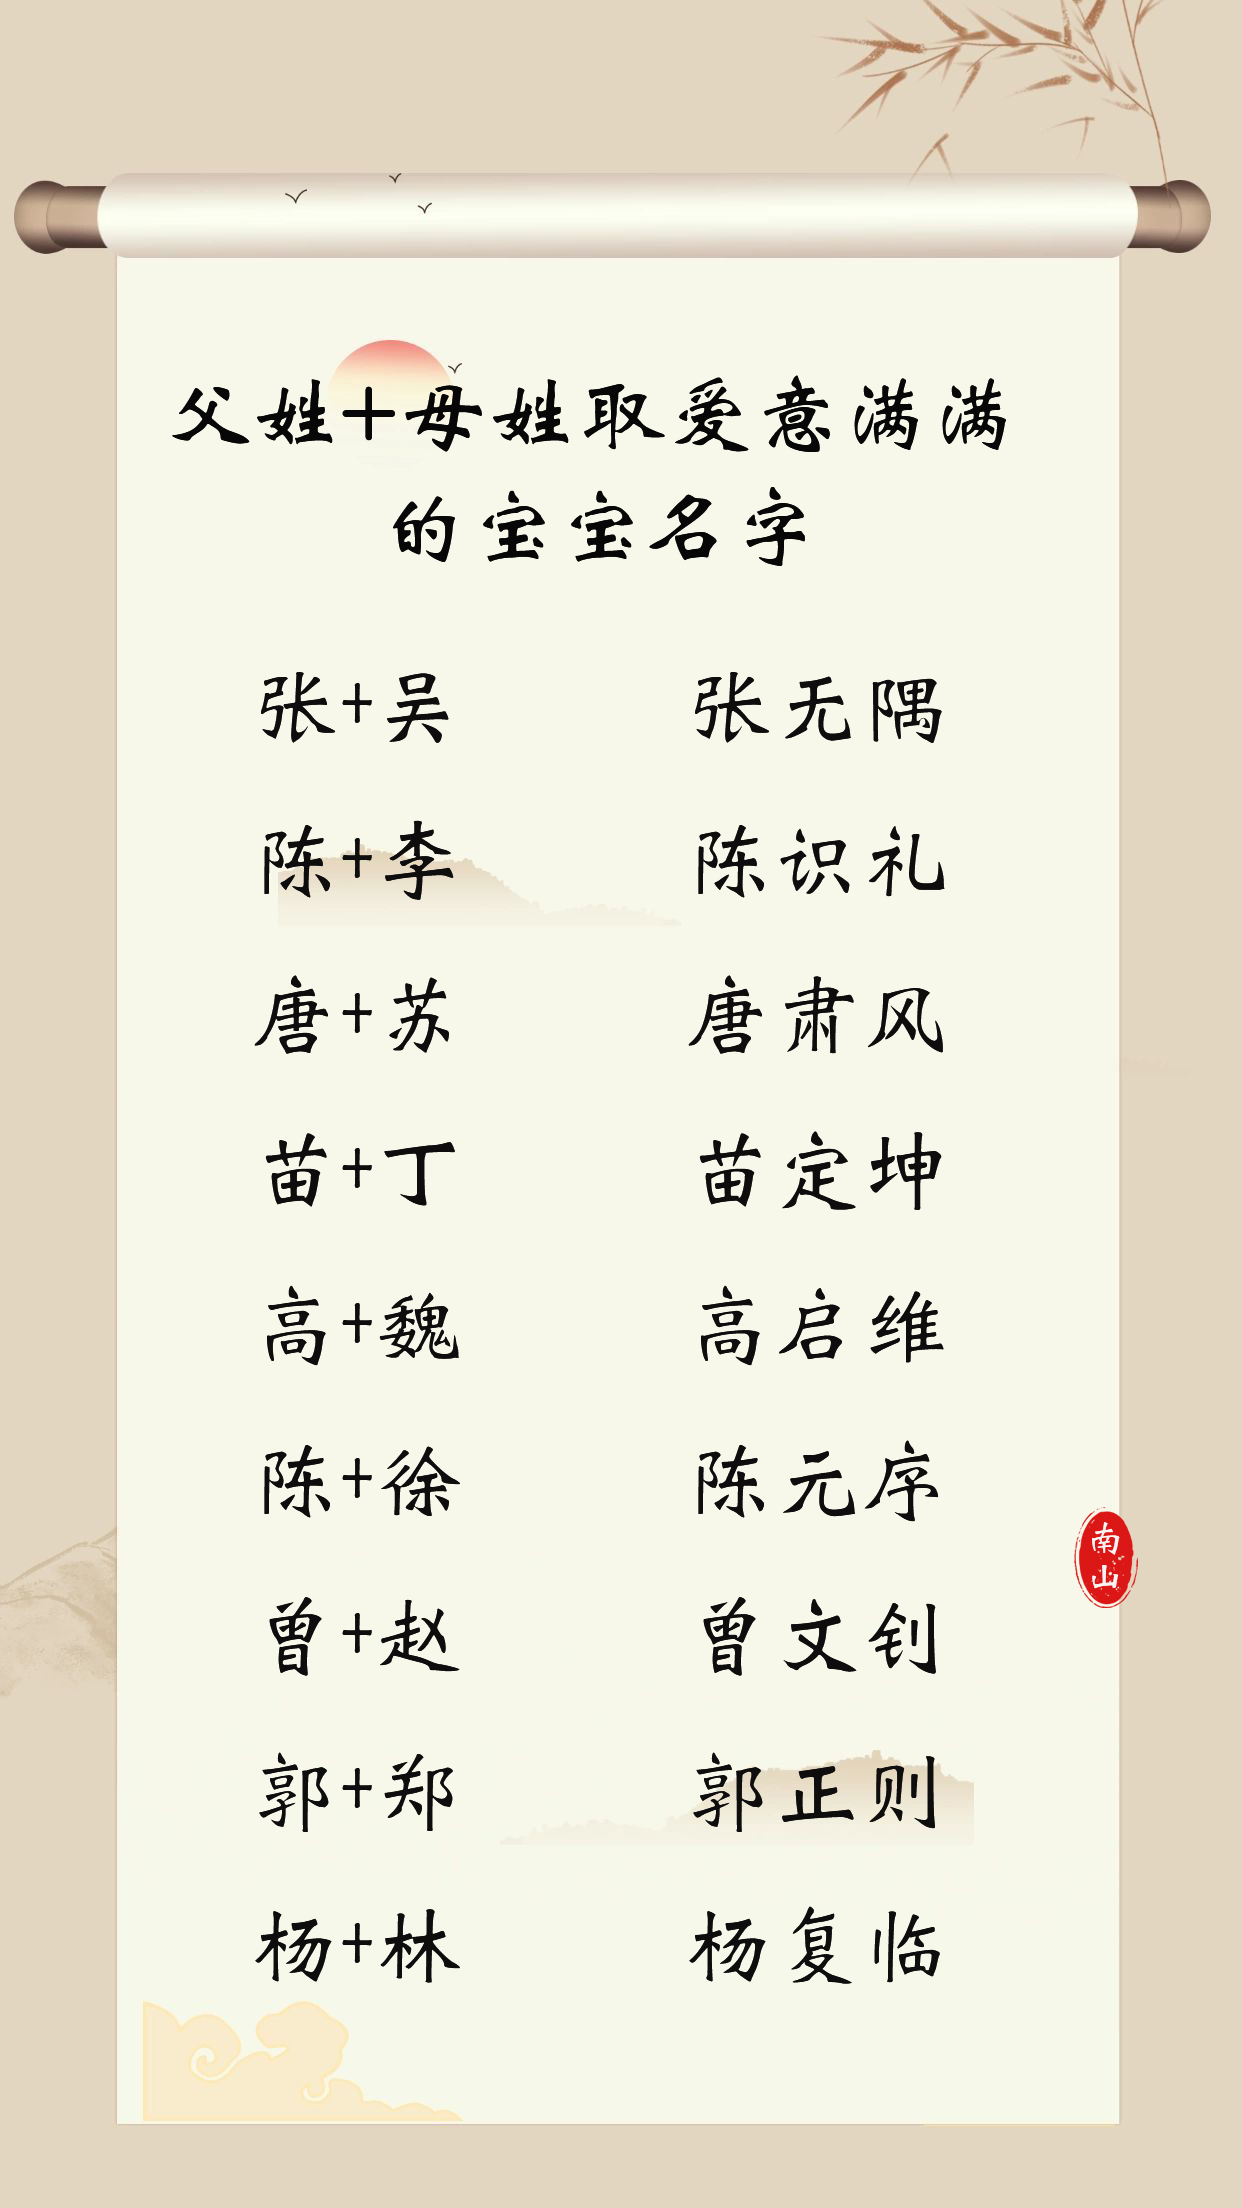 父姓+母姓取爱意满满
的宝宝名字
张+吴 张无隅
陈+李 陈识礼
唐+苏 唐肃风
苗+丁 苗定坤
高+魏 高启维
陈+徐 陈元序
南山
曾+赵 曾文钊
郭+郑 郭正则
杨+林 杨复临